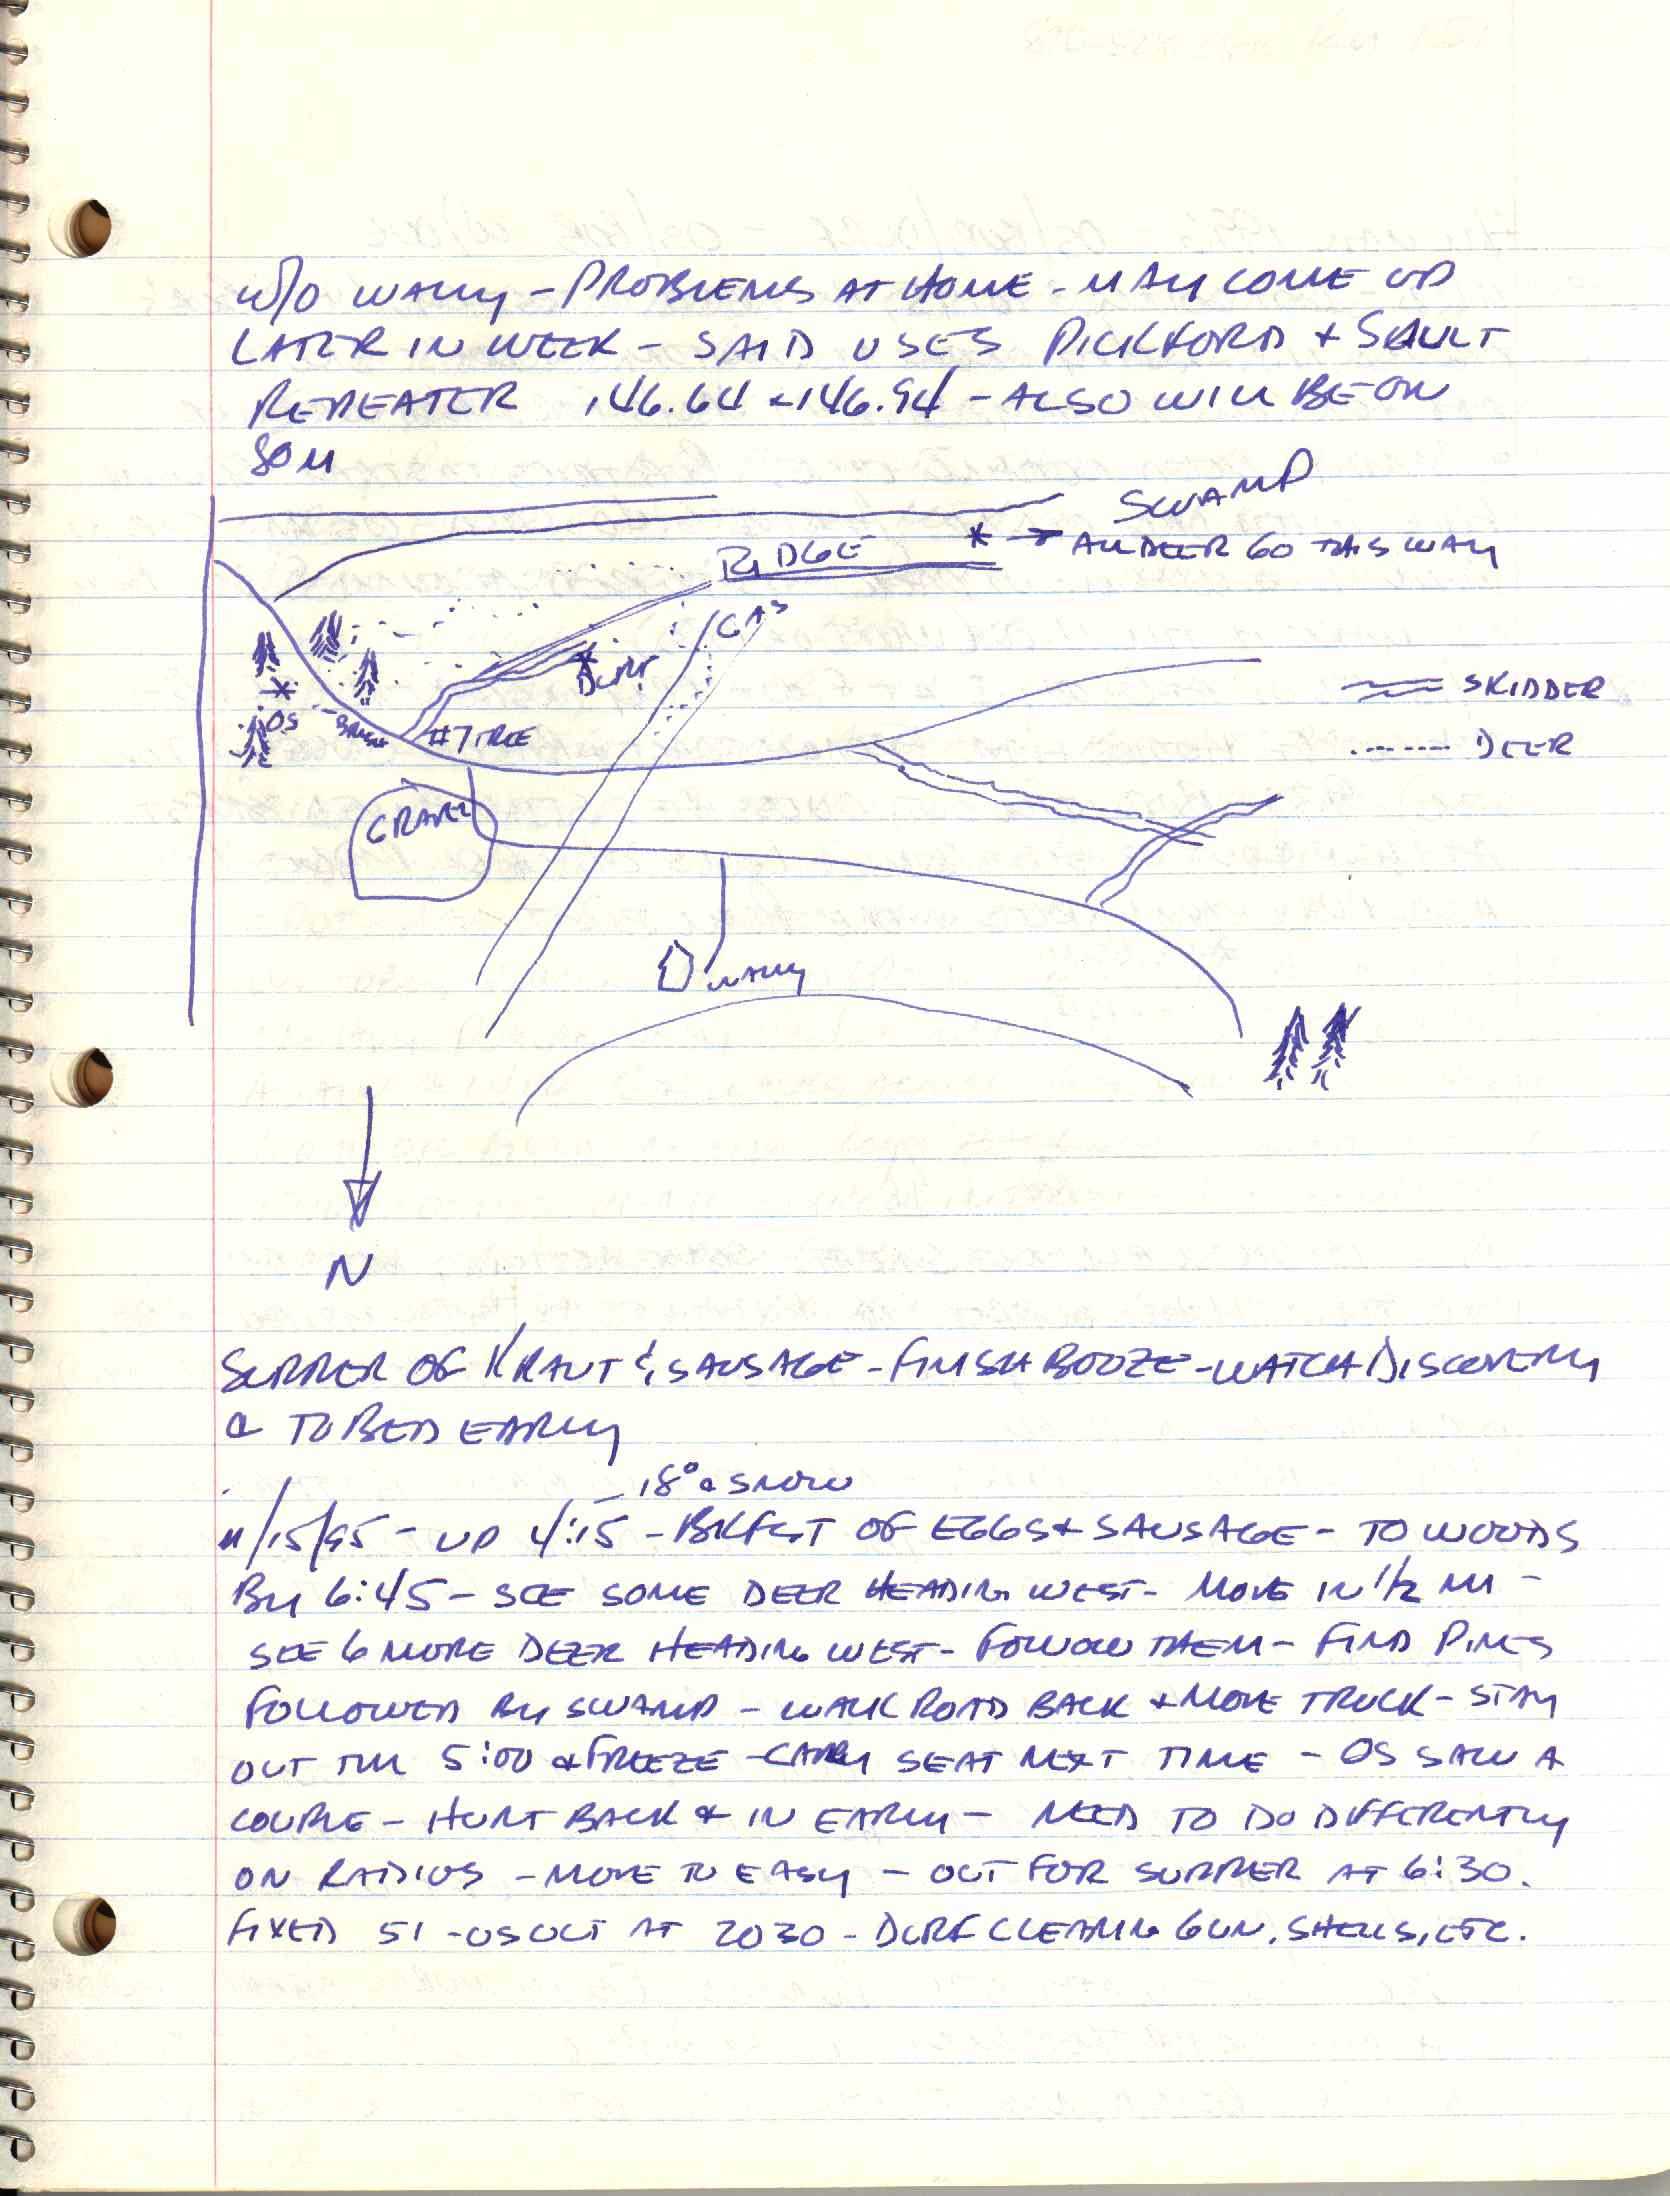 W/O WALLY - PROBLEMS AT HOME - MAY COME UP
LATER IN WEEK - SAID USES PICKFORD + SAULT
REPEATER 146.64 & 146.94 - ALSO WILL BE ON
80M
SWAMP
* → ALL DEER GO THIS WAY
RIDGE
GAS
DURF
SKIDDER
OS
#7 TREE
DEER
GRAVEL
WALLY
N
SUPPER OF KRAUT & SAUSAGE - FINISH BOOZE - WATCH DISCOVERY
& TO BED EARLY
- 18° & SNOW
11/15/95 - UP 4:15 - BKFST OF EGGS & SAUSAGE - TO WOODS
BY 6:45 - SEE SOME DEER HEADING WEST - MOVE IN 1/2 MI -
SEE 6 MORE DEER HEADING WEST - FOLLOW THEM - FIND PINES
FOLLOWED BY SWAMP - WALK ROAD BACK & MOVE TRUCK - STAY
OUT TILL 5:00 & FREEZE - CARRY SEAT NEXT TIME - OS SAW A
COUPLE - HUNT BACK & IN EARLY - NEED TO DO DIFFERENTLY
ON RADIOS - MOVE TO EASY - OUT FOR SUPPER AT 6:30.
FIXED 51 - OS OUT AT 2030 - DURF CLEANING GUN, SHELLS, ETC.